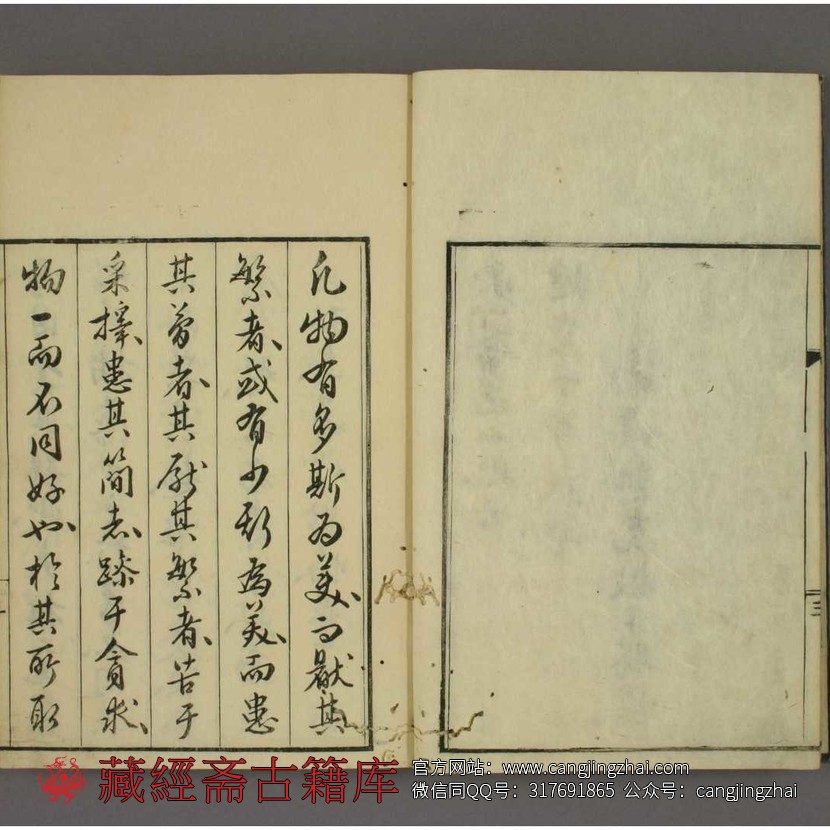 凡物有多斯為美而厭其
繁者或有少斯為美而患
其寡者其厭其繁者苦于
采擇患其簡志躁于貪求
物一而不同好也於其所取
藏經斋古籍库
官方网站：www.cangjingzhai.com
微信同QQ号：317691865 公众号：cangjingzhai